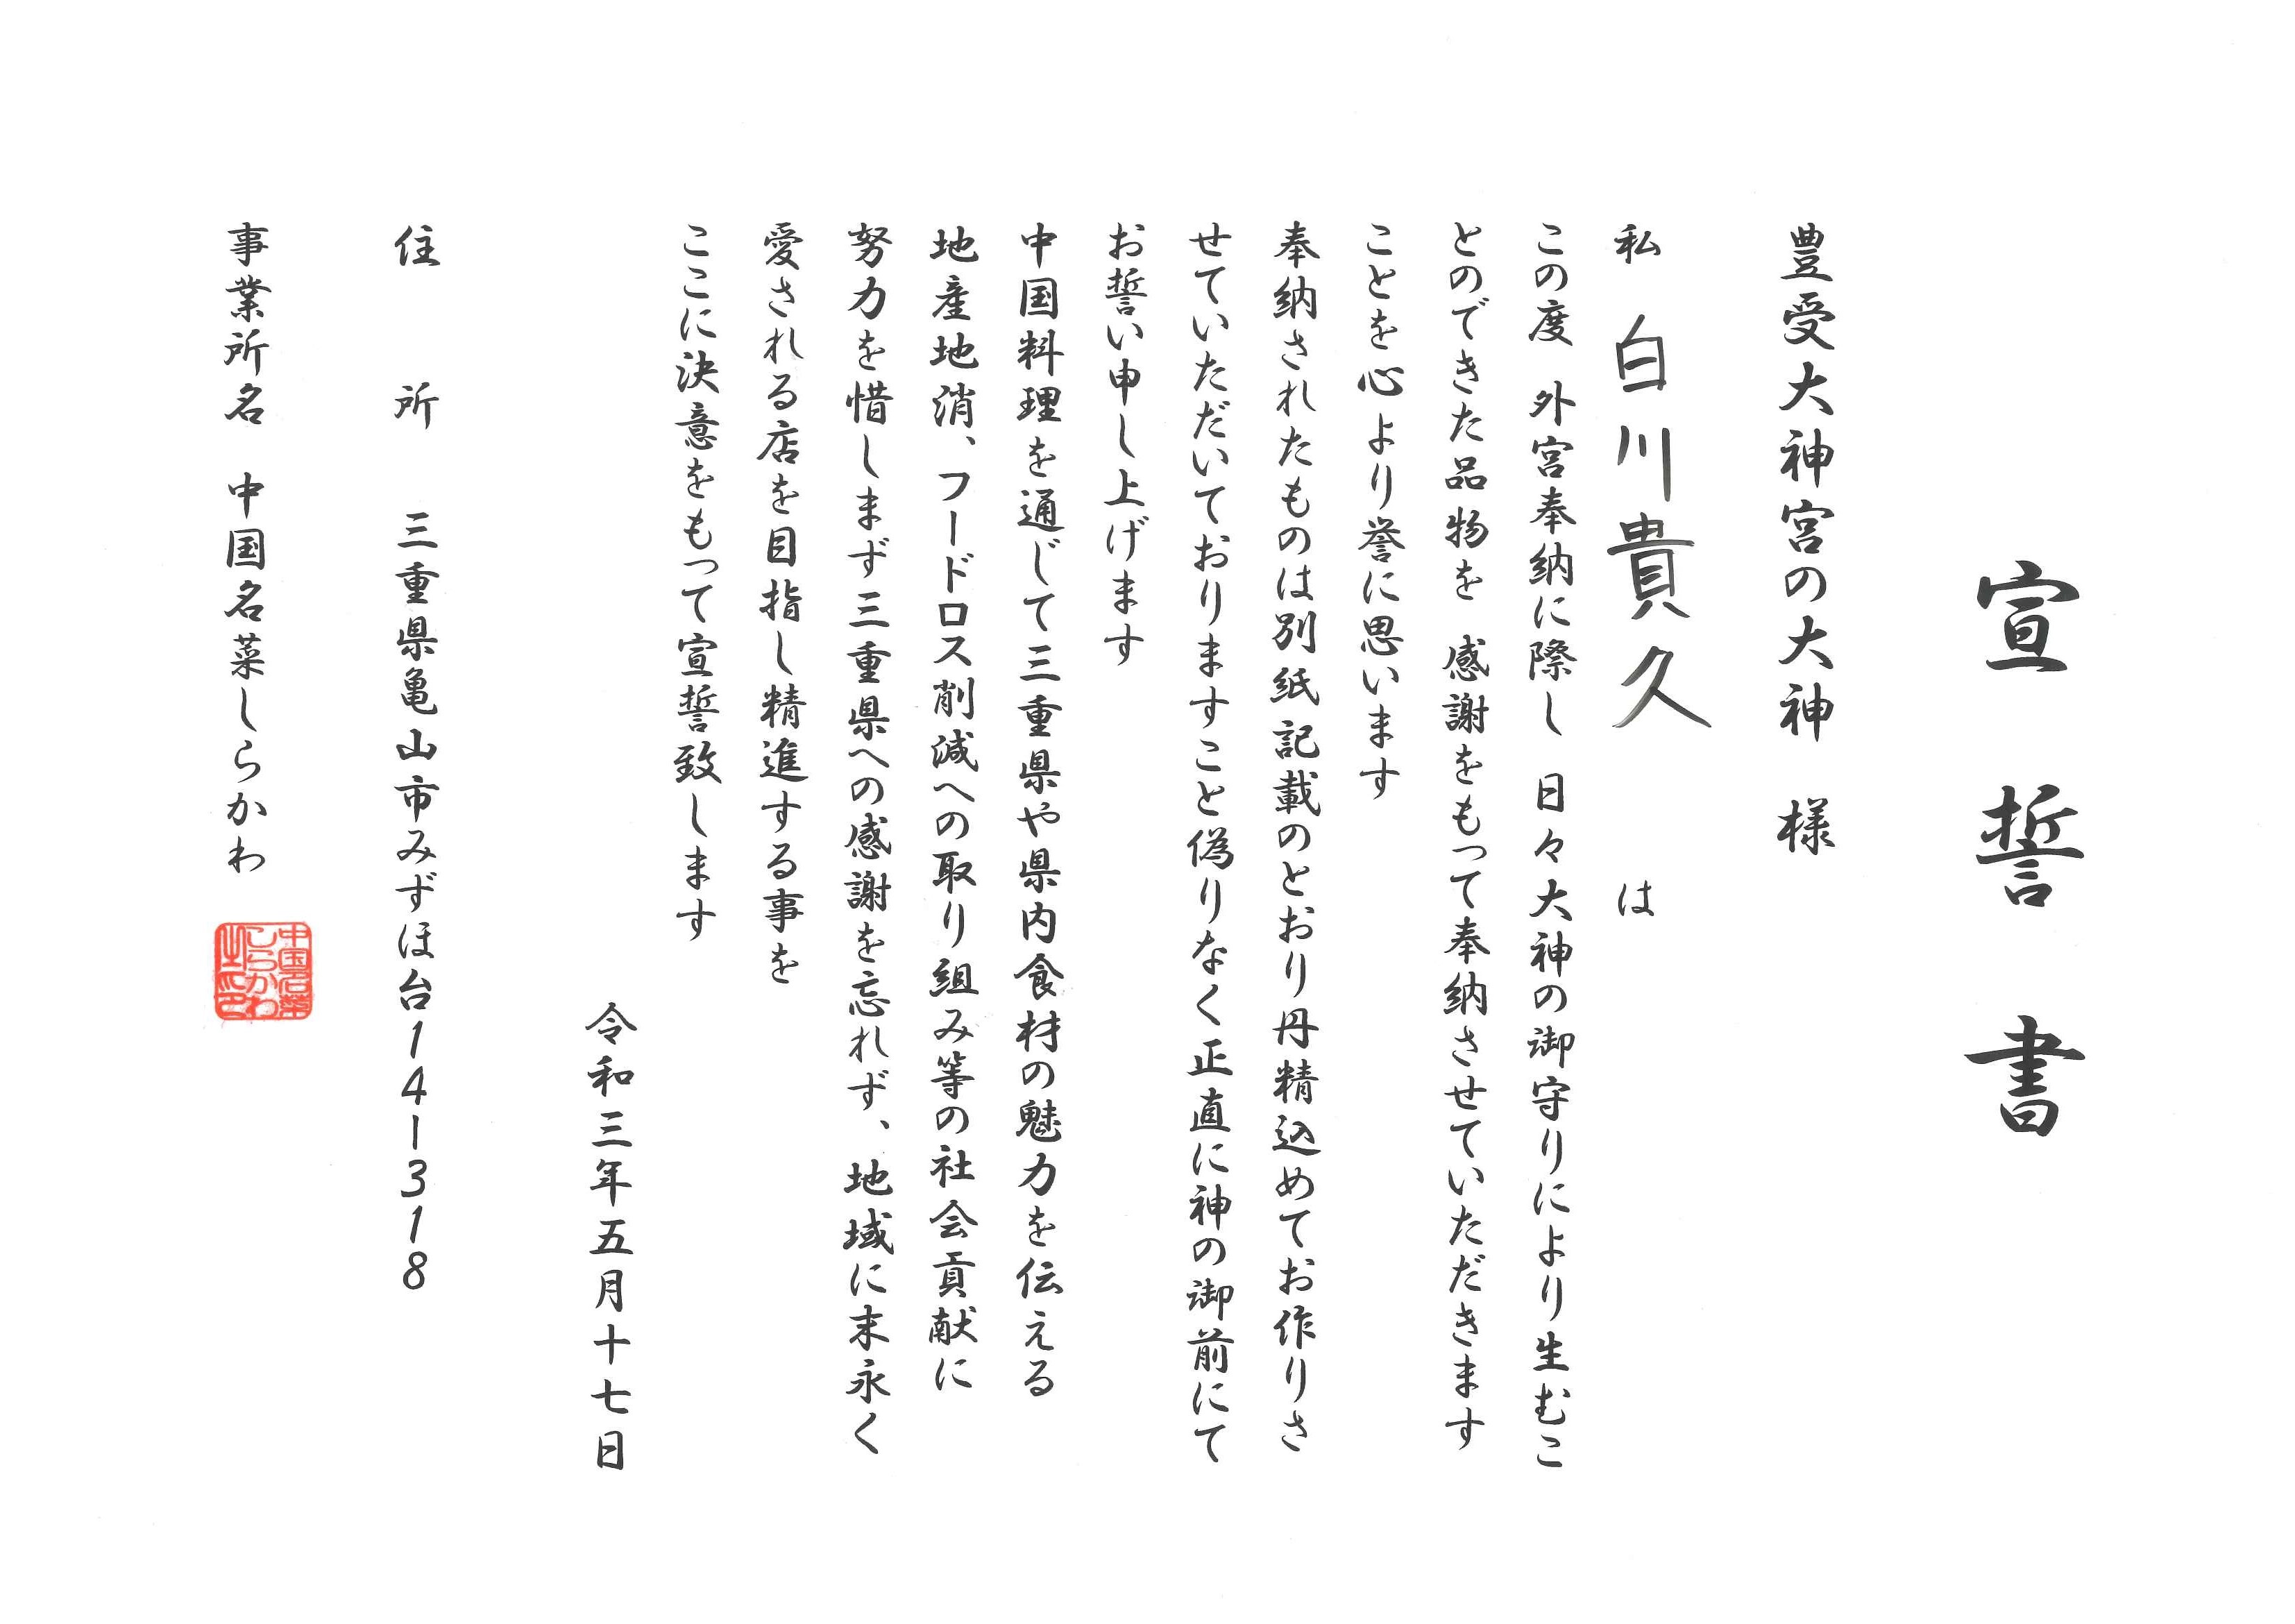 宣誓書
豊受大神宮の大神 様
私 白川貴久 は
この度 外宮奉納に際し 日々大神の御守りにより生むこ
とのできた品物を 感謝をもって奉納させていただきます
ことを心より誉に思います
奉納されたものは別紙記載のとおり丹精込めてお作りさ
せていただいておりますこと偽りなく正直に神の御前にて
お誓い申し上げます
中国料理を通じて三重県や県内食材の魅力を伝える
地産地消、フードロス削減への取り組み等の社会貢献に
努力を惜しまず三重県への感謝を忘れず、地域に末永く
愛される店を目指し精進する事を
ここに決意をもって宣誓致します
令和三年五月十七日
住所 三重県亀山市みずほ台14-318
事業所名 中国名菜しらかわ
中国名菜
しらかわ
之印